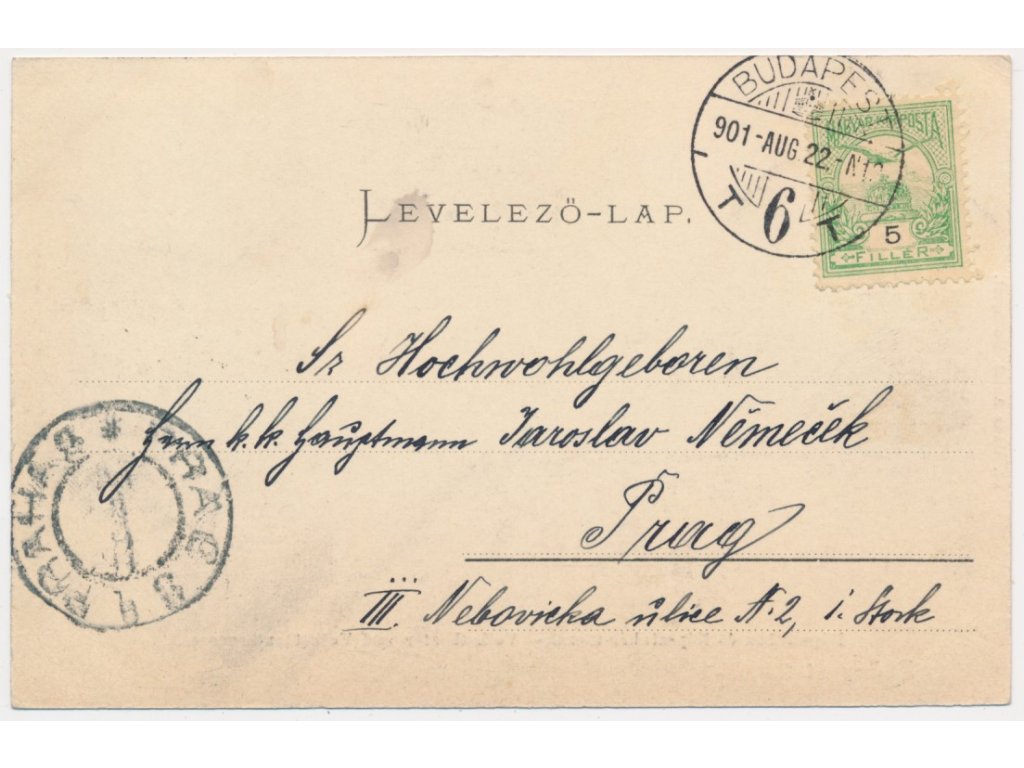 BUDAPEST
901-AUG 22.-N12
T 6 T
MAGYAR KIR. POSTA
5
FILLÉR
LEVELEZŐ-LAP.
Sr Hochwohlgeboren
Herrn k. k. Hauptmann Jaroslav Němeček
Prag
III. Nebovicka ulice N. 2, i. Stock
PRAG 3 PRAHA 3